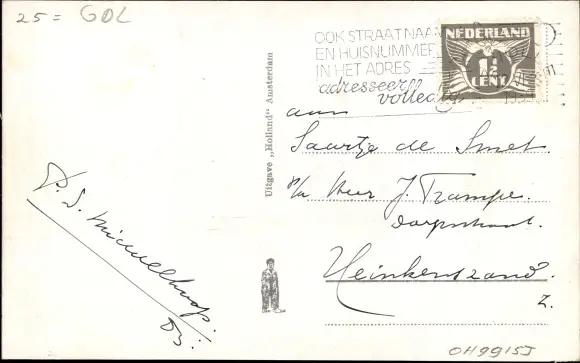 25 = GDL
OOK STRAATNAAM
EN HUISNUMMER
IN HET ADRES
adresseer
volledig
NEDERLAND
1½
CENT
Uitgave „Holland" Amsterdam
aan
Saartje de Smet
p/a Heer J. Trampe.
Dorpstraat.
Heinkenszand.
Z.
OH9915J